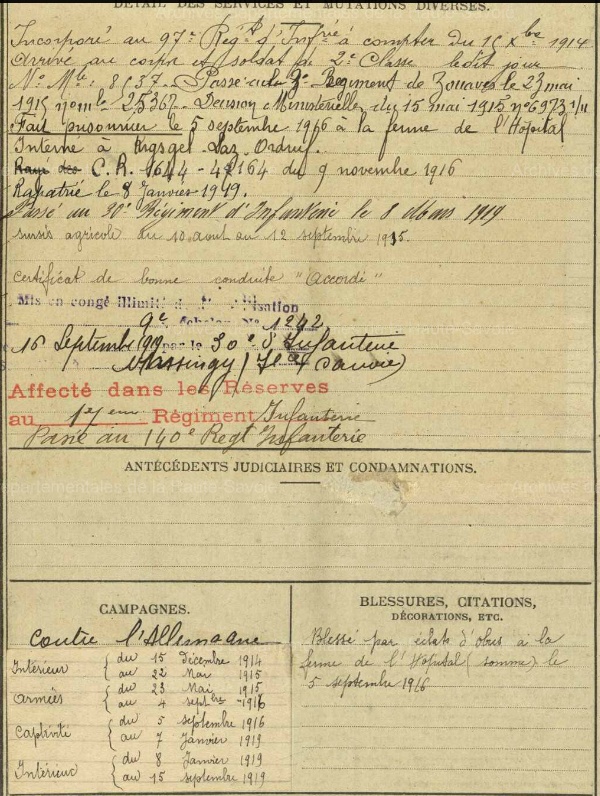 DÉTAIL DES SERVICES ET MUTATIONS DIVERSES.
Incorporé au 97e Régt d'Infrie à compter du 15 Xbre 1914
Arrivé au corps et soldat de 2e Classe ledit jour
No Mle: 8537. Passé au 3e Régiment de Zouaves le 23 mai
1915 no mle 25367 Décision Ministérielle du 15 mai 1915 no 6973 1/11
Fait prisonnier le 5 septembre 1916 à la ferme de l'Hôpital
Interné à Laz Ordruf.
Rayé des C.R. 1644 - 49164 du 9 novembre 1916
Rapatrié le 8 Janvier 1919.
Passé au 30e Régiment d'Infanterie le 8 Mars 1919
sursis agricole du 10 août au 12 septembre 1915.
certificat de bonne conduite "Accordé"
Mis en congé illimité
9e échelon No 1242
16 Septembre 1919 par le 30e d'Infanterie
Massingy (Hte Savoie)
Affecté dans les Réserves
au Régiment Infanterie
Passé au 140e Regt Infanterie
ANTÉCÉDENTS JUDICIAIRES ET CONDAMNATIONS.
CAMPAGNES.
contre l'Allemagne
Intérieur { du 15 décembre 1914
au 22 Mai 1915
Armées { du 23 Mai 1915
au 4 septbre 1916
Captivité { du 5 septembre 1916
au 7 Janvier 1919
Intérieur { du 8 Janvier 1919
au 15 septembre 1919
BLESSURES, CITATIONS,
DÉCORATIONS, ETC.
Blessé par éclats d'obus à la
ferme de l'Hôpital (somme) le
5 septembre 1916